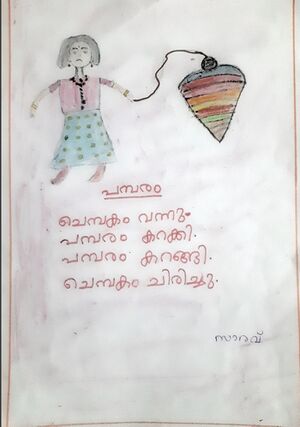 പമ്പരം
ചെമ്പകം വന്നു.
പമ്പരം കറക്കി.
പമ്പരം കറങ്ങി.
ചെമ്പകം ചിരിച്ചു.
സാരവ്